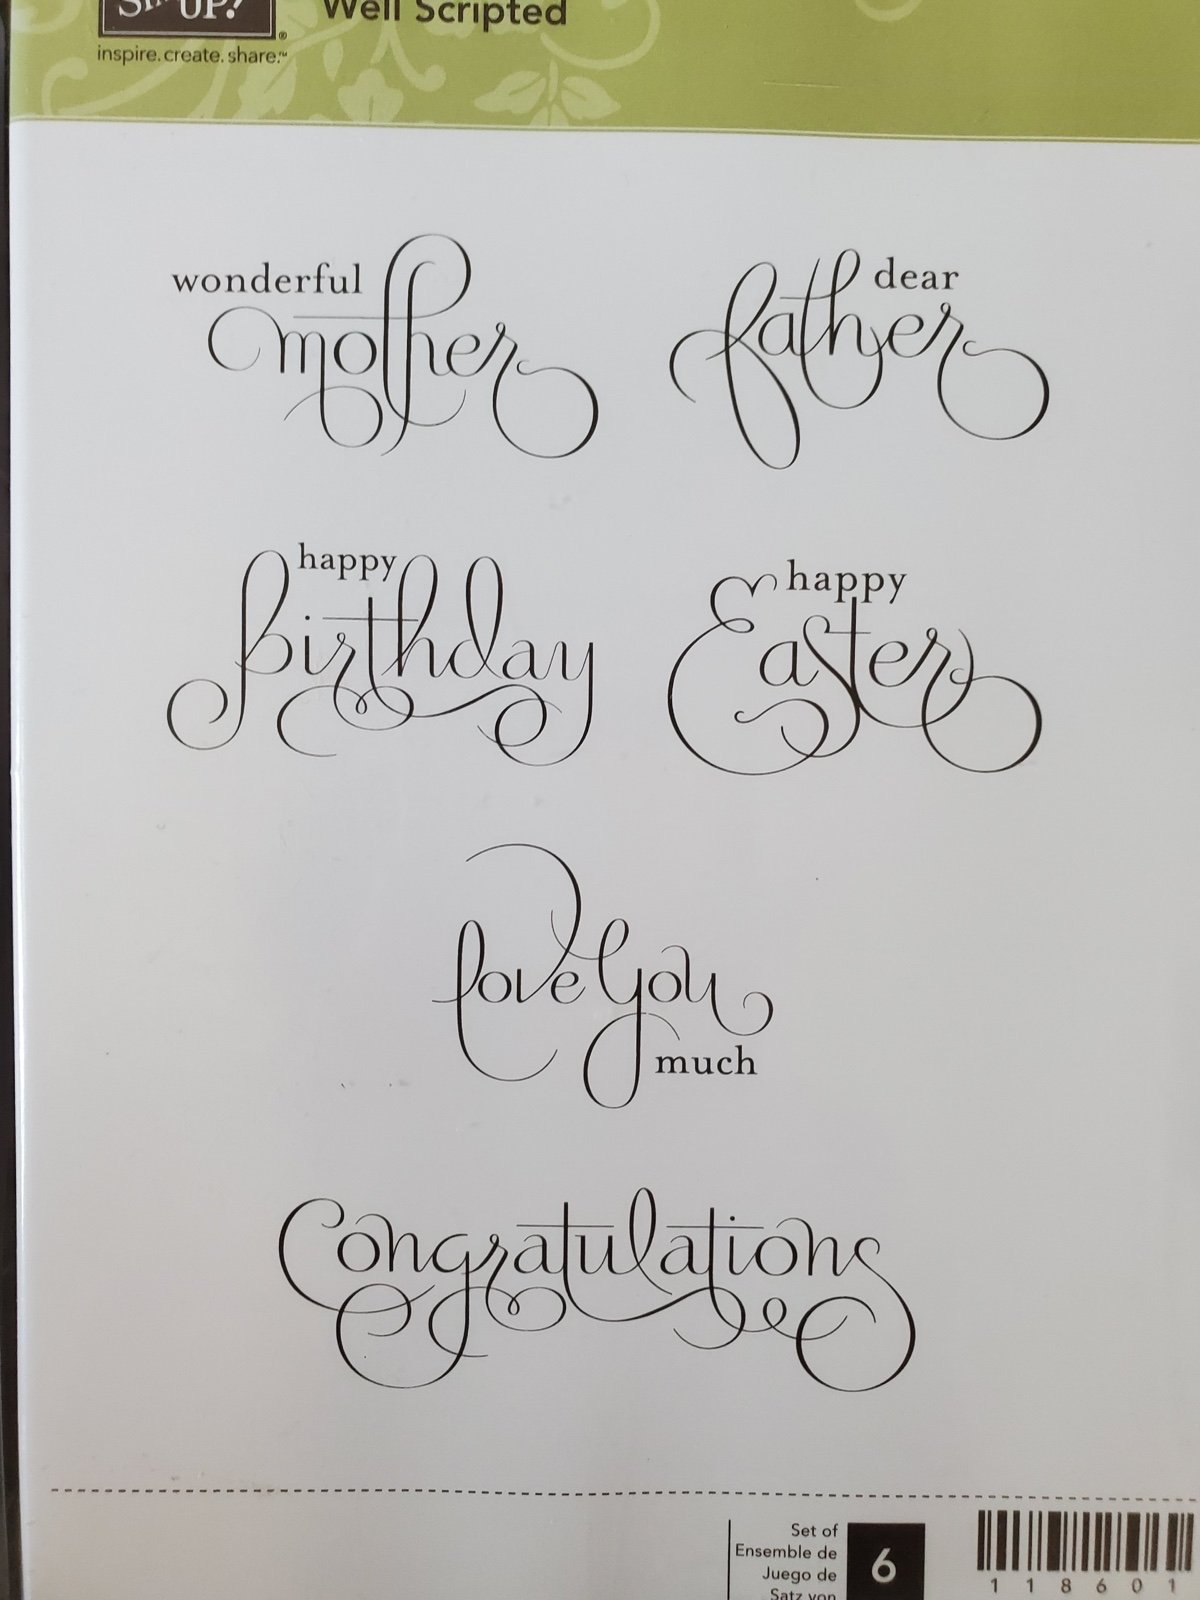 UP!®
Well Scripted
inspire.create.share.™
wonderful
mother
dear
father
happy
Birthday
happy
Easter
love you
much
Congratulations
Set of
Ensemble de
Juego de
Satz von
6
118601